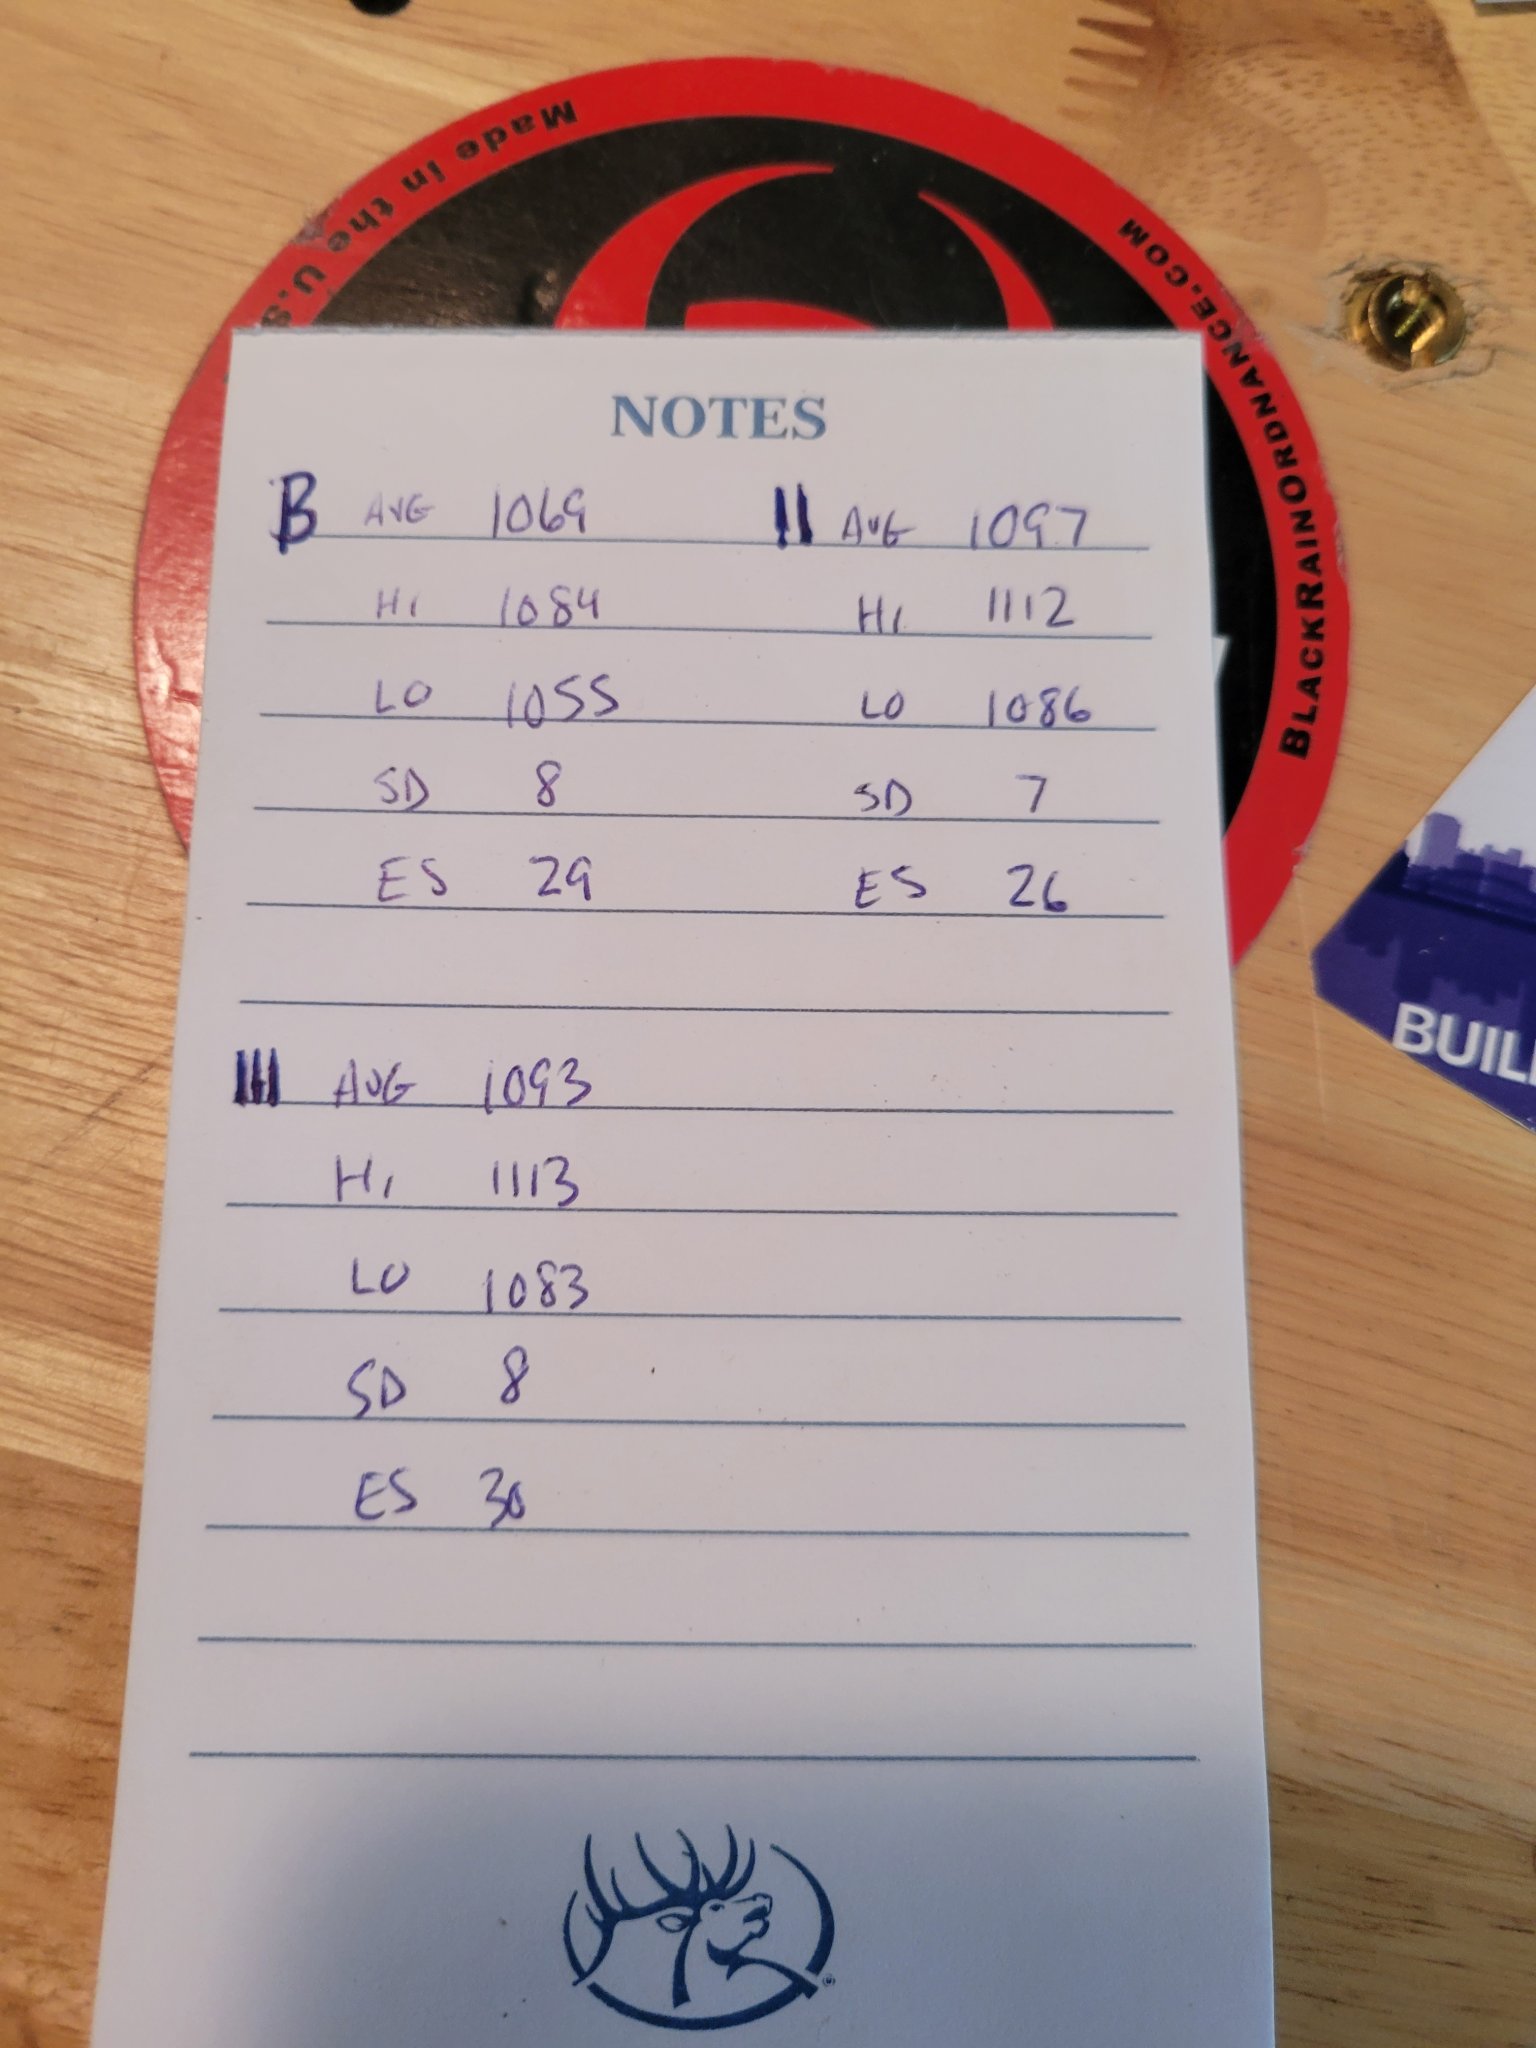 Made in the U.S
BLACKRAINORDNANCE.COM
NOTES
B AVG 1069 II AVG 1097
HI 1084 HI 1112
LO 1055 LO 1086
SD 8 SD 7
ES 29 ES 26
III AVG 1093
HI 1113
LO 1083
SD 8
ES 30
BUIL
®